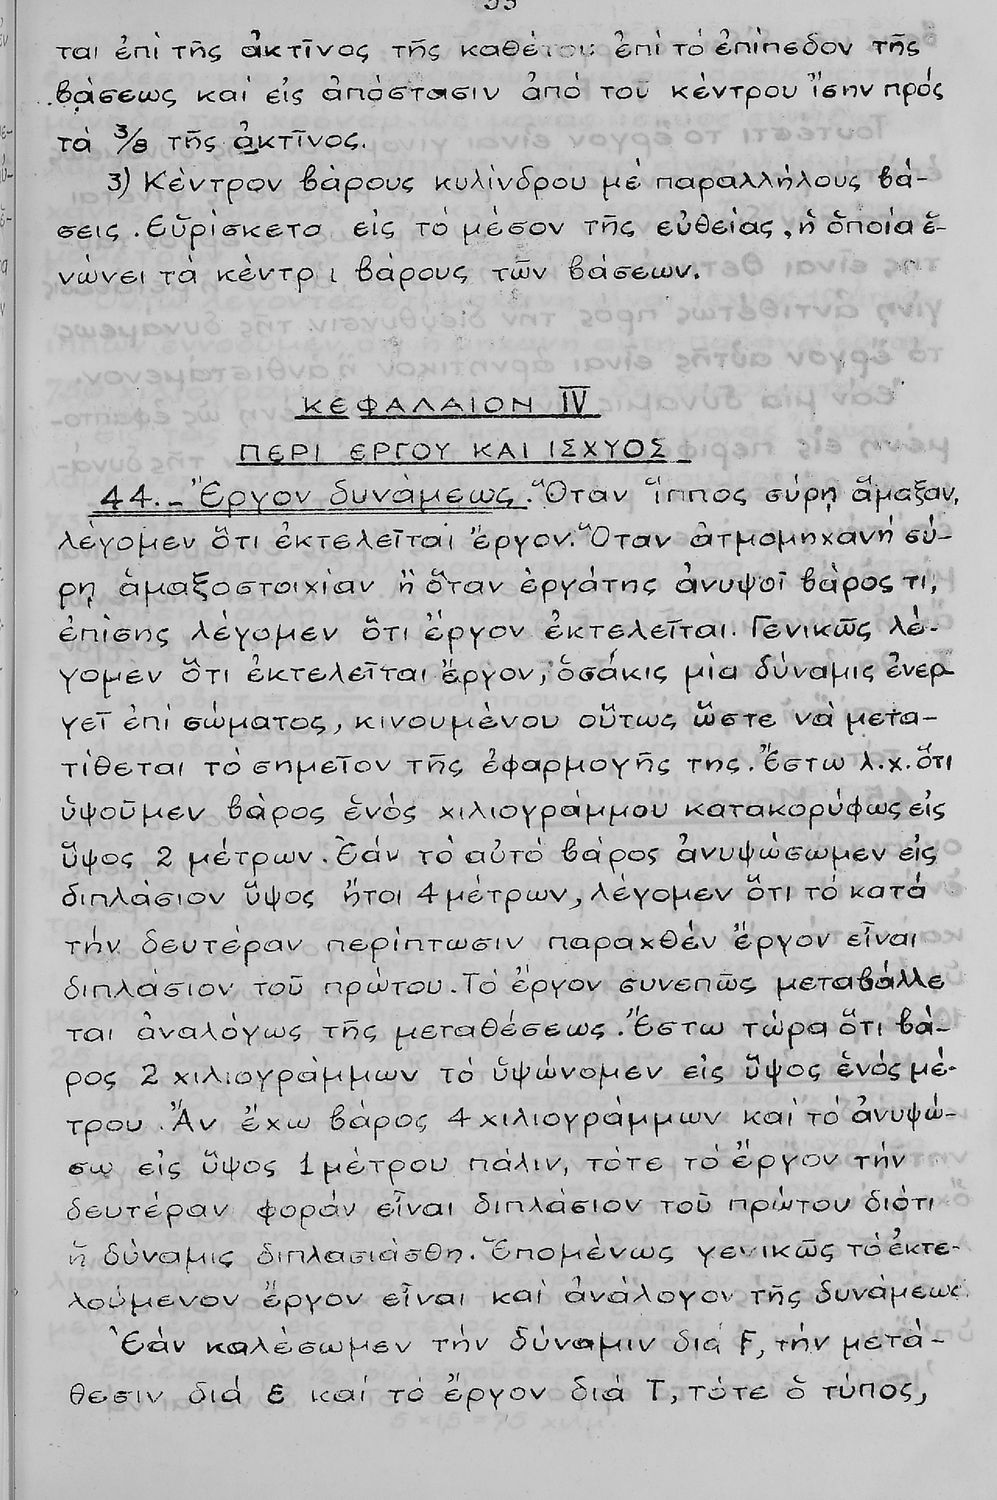 ται ἐπί τῆς ἀκτῖνος τῆς καθέτου ἐπί τό ἐπίπεδον τῆς
βάσεως καί εἰς ἀπόστασιν ἀπό τοῦ κέντρου ἴσην πρός
τά 3/8 τῆς ἀκτῖνος.
3) Κέντρον βάρους κυλίνδρου μέ παραλλήλους βά-
σεις. Εὑρίσκετα εἰς τό μέσον τῆς εὐθείας, ἡ ὁποία ἑ-
νώνει τά κέντρ ι βάρους τῶν βάσεων.
ΚΕΦΑΛΑΙΟΝ IV
ΠΕΡΙ ΕΡΓΟΥ ΚΑΙ ΙΣΧΥΟΣ
44.- Ἔργον δυνάμεως. Ὅταν ἵππος σύρῃ ἅμαξαν,
λέγομεν ὅτι ἐκτελεῖται ἔργον. Ὅταν ἀτμομηχανή σύ-
ρῃ ἁμαξοστοιχίαν ἤ ὅταν ἐργάτης ἀνυψοῖ βάρος τι,
ἐπίσης λέγομεν ὅτι ἔργον ἐκτελεῖται. Γενικῶς λέ-
γομεν ὅτι ἐκτελεῖται ἔργον, ὁσάκις μία δύναμις ἐνερ-
γεῖ ἐπί σώματος, κινουμένου οὕτως ὥστε νά μετα-
τίθεται τό σημεῖον τῆς ἐφαρμογῆς της. Ἔστω λ.χ. ὅτι
ὑψοῦμεν βάρος ἑνός χιλιογράμμου κατακορύφως εἰς
ὕψος 2 μέτρων. Ἐάν τό αὐτό βάρος ἀνυψώσωμεν εἰς
διπλάσιον ὕψος ἤτοι 4 μέτρων, λέγομεν ὅτι τό κατά
τήν δευτέραν περίπτωσιν παραχθέν ἔργον εἶναι
διπλάσιον τοῦ πρώτου. Τό ἔργον συνεπῶς μεταβάλλε
ται ἀναλόγως τῆς μεταθέσεως. Ἔστω τώρα ὅτι βά-
ρος 2 χιλιογράμμων τό ὑψώνομεν εἰς ὕψος ἑνός μέ-
τρου. Ἄν ἔχω βάρος 4 χιλιογράμμων καί τό ἀνυψώ-
σω εἰς ὕψος 1 μέτρου πάλιν, τότε τό ἔργον τήν
δευτέραν φοράν εἶναι διπλάσιον τοῦ πρώτου διότι
ἡ δύναμις διπλασιάσθη. Ἑπομένως γενικῶς τό ἐκτε-
λούμενον ἔργον εἶναι καί ἀνάλογον τῆς δυνάμεως.
Ἐάν καλέσωμεν τήν δύναμιν διά F, τήν μετά-
θεσιν διά ε καί τό ἔργον διά Τ, τότε ὁ τύπος,